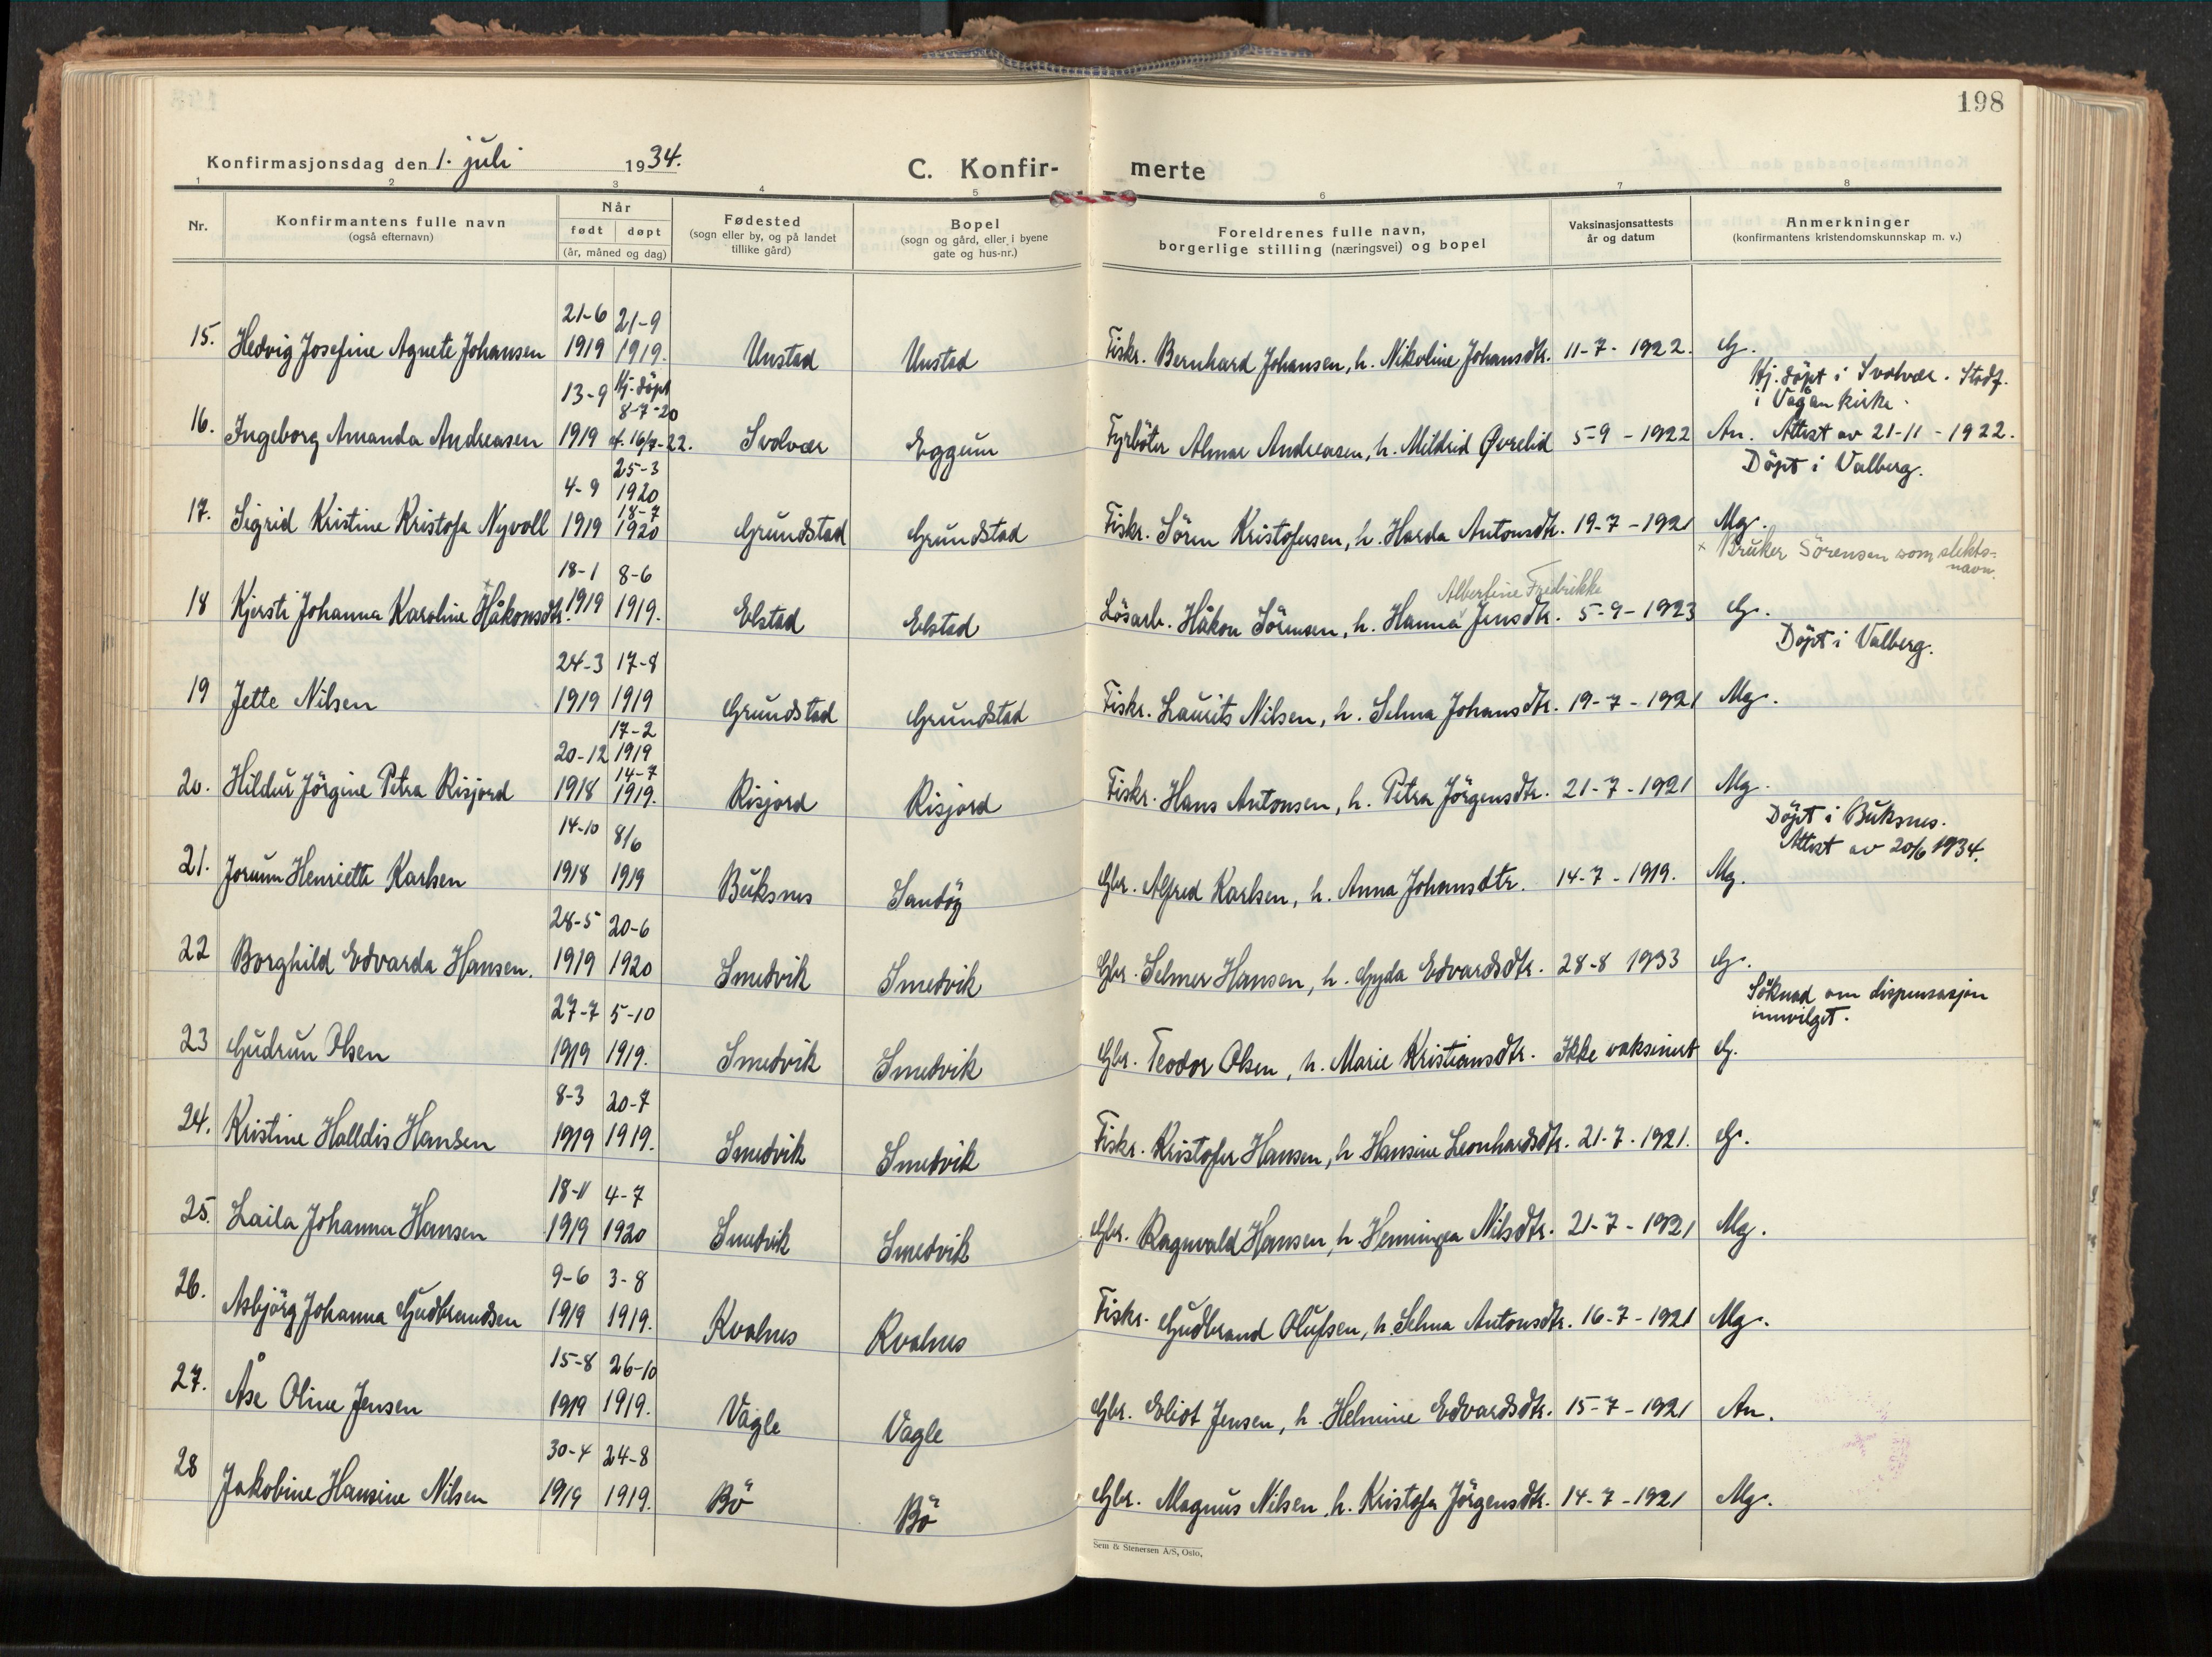 198
Konfirmasjonsdag den 1. juli 1934.
C. Konfir- merte
1 2 3 4 5 6 7 8
Nr.
Konfirmantens fulle navn
(også efternavn)
Når
født døpt
(år, måned og dag)
Fødested
(sogn eller by, og på landet
tillike gård)
Bopel
(sogn og gård, eller i byene
gate og hus-nr.)
Foreldrenes fulle navn,
borgerlige stilling (næringsvei) og bopel
Vaksinasjonsattests
år og datum
Anmerkninger
(konfirmantens kristendomskunnskap m. v.)
21-6 21-9
15. Hedvig Josefine Agnete Johansen 1919 1919. Unstad Unstad Fiskr. Bernhard Johansen, h. Nikoline Johansdtr. 11-7-1922. G.
13-9 Hj. döpt 8-7-20 Hj. döpt i Svolvær. Stadf.
i Vågan kirke.
16. Ingeborg Amanda Andreasen 1919 st. 16/7-22. Svolvær Eggum Fyrböter Almar Andreasen, h. Mildrid Øvrelid 5-9-1922 An. Attest av 21-11-1922.
25-3
4-9 1920 Döpt i Valberg.
18-7
17. Sigrid Kristine Kristofa Nyvoll 1919 1920 Grundstad Grundstad Fiskr. Sören Kristofersen, h. Harda Antonsdtr. 19-7-1921 Mg.
× Bruker Sörensen som slekts-
navn.
18-1 8-6 Albertine Fredrikke
18 Kjersti Johanna Karoline × Håkonsdtr. 1919 1919. Elstad Elstad Lösarb. Håkon Sörensen, h. Hanna Jensdtr. 5-9-1923 G.
24-3 17-8 Döpt i Valberg.
19 Jette Nilsen 1919 1919 Grundstad Grundstad Fiskr. Laurits Nilsen, h. Selma Johansdtr. 19-7-1921 Mg.
17-2
20-12 1919
14-7
20. Hildur Jörgine Petra Risjord 1918 1919. Risjord Risjord Fiskr. Hans Antonsen, h. Petra Jörgensdtr. 21-7-1921 Mg.
14-10 8/6 Döpt i Buksnes.
Attest av 20/6 1934.
21. Jorunn Henriette Karlsen 1918 1919 Buksnes Sandöy Gbr. Alfred Karlsen, h. Anna Johansdtr. 14-7-1919. Mg.
28-5 20-6
22 Borghild Edvarda Hansen. 1919 1920 Smedvik Smedvik Gbr. Selmer Hansen, h. Gyda Edvardsdtr. 28-8 1933 G.
27-7 5-10 Söknad om dispensasjon
innvilget.
23 Gudrun Olsen 1919 1919. Smedvik Smedvik Gbr. Teodor Olsen, h. Marie Kristiansdtr. Ikke vaksinert G.
8-3 20-7
24. Kristine Halldis Hansen 1919 1919. Smedvik Smedvik Fiskr. Kristofer Hansen, h. Hansine Leonhardsdtr. 21-7-1921. G.
18-11 4-7
25. Laila Johanna Hansen 1919 1920 Smedvik Smedvik Gbr. Ragnvald Hansen, h. Henningea Nilsdtr. 21-7-1921 Mg.
9-6 3-8
26. Asbjörg Johanna Gudbrandsen 1919 1919. Kvalnes Kvalnes Fiskr. Gudbrand Olufsen, h. Selma Antonsdtr. 16-7-1921 Mg.
15-8 26-10
27. Åse Oline Jensen 1919 1919. Vagle Vagle Gbr. Eliot Jensen, h. Helmine Edvardsdtr. 15-7-1921 An.
30-4 24-8
28 Jakobine Hansine Nilsen 1919 1919. Bö Bö Gbr. Magnus Nilsen, h. Kristofa Jörgensdtr. 14-7-1921 Mg.
Sem & Stenersen A/S, Oslo,